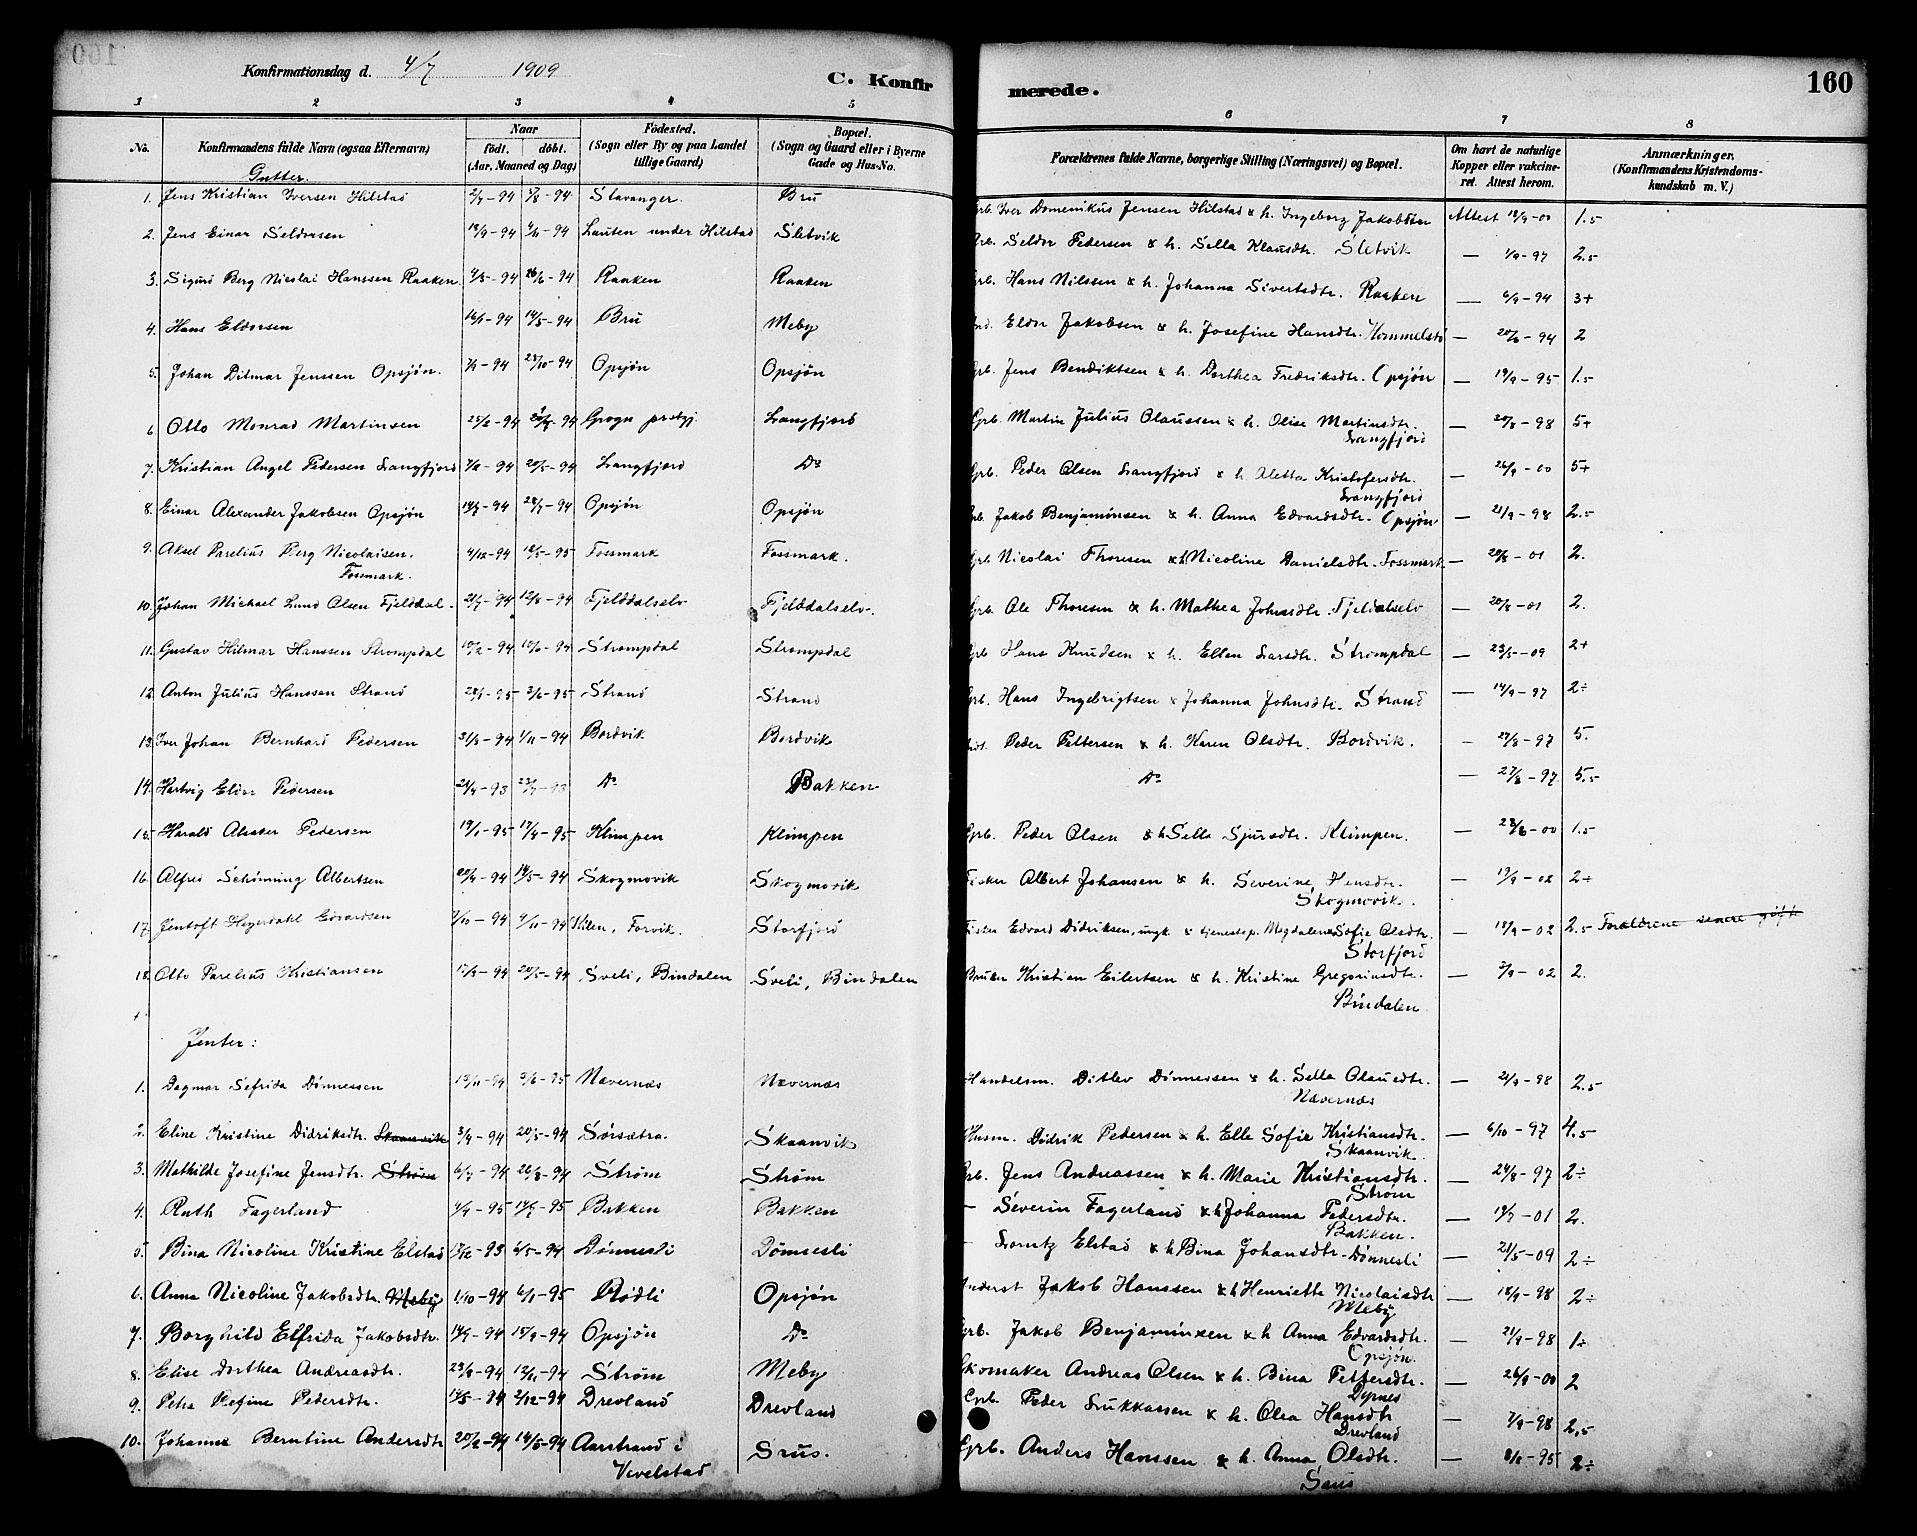 Konfirmationsdag d. 4/7 1909
C. Konfirmerede. 160
1 2 3 4 5 6 7 8
No. Konfirmandens fulde Navn (ogsaa Efternavn) Naar født. døbt. (Aar, Maaned og Dag) Fødested. (Sogn eller By og paa Landet tillige Gaard) Bopæl. (Sogn og Gaard eller i Byerne Gade og Hus-No. Forældrenes fulde Navne, borgerlige Stilling (Næringsvei) og Bopæl. Om havt de naturlige Kopper eller vakcineret. Attest herom. Anmærkninger. (Konfirmandens Kristendomskundskab m. V.)
Gutter.
1. Jens Kristian Iversen Hilstad -94 -94 Stavanger. Bru Grb. Iver Domenikus Jensen Hilstad & h. Ingeborg Jakobsdtr Attest 18/9-00 1.5
2. Jens Einar Seldorsen -94 -94 Lauten under Hilstad Sletvik Grb. Seldor Pedersen & h. Sella Klausdtr. Sletvik — 1/9-97 2.5
3. Sigurd Berg Nicolai Hanssen Raaken -94 26/6-94 Raaken Raaken Grb. Hans Nilssen & h. Johanna Sivertsdtr. Raaken — 6/9-94 3+
4. Hans Eldorsen 16/1-94 14/5-94 Bru Meby Eldor Jakobsen & h. Josefine Hansdtr. Hommelstø — -94 2
5. Johan Ditmar Jenssen Opsjøn. -94 28/10-94 Opsjøn Opsjøn Grb. Jens Bendiktsen & h. Dorthea Fredriksdtr. Opsjøn — 19/9-95 1.5
6. Otto Monrad Martinsen 25/2-94 -94 Grogn prestgj. Langfjord Grb. Martin Julius Olaussen & h. Olise Martinsdtr. — 20/8-98 5+
Langfjord
7. Kristian Angel Pedersen Langfjord -94 20/5-94 Langfjord Do Grb. Peder Olsen Langfjord & h. Aletta Kristofersdtr. — 26/9-00 5+
Langfjord
8. Einar Alexander Jakobsen Opsjøn -94 -94 Opsjøn Opsjøn Grb. Jakob Benjaminsen & h. Anna Edvardsdtr. Opsjøn — 21/9-98 2.5
9. Aksel Parelius Berg Nicolaisen. 4/12-94 18/5-95 Fossmark Fossmark. Grb. Nicolai Thoresen & h. Nicoline Danielsdtr. Fossmark — 20/8-01 2.
Fossmark.
10. Johan Michael Lund Olsen Fjelddal. -94 12/8-94 Fjelddalselv Fjelddalselv. Grb. Ole Thoresen & h. Mathea Johnsdtr. Fjeldalselv — 20/8-01 2.
11. Gustav Hilmar Hanssen Strompdal 10/2-94 10/6-94 Strompdal Strompdal Grb Hans Knudsen & h. Ellen Larsdtr. Strompdal — 23/5-09 2+
12. Anton Julius Hanssen Strand 28/1-95 3/6-95 Strand Strand Grb. Hans Ingebrigtsen & Johanna Johnsdtr. Strand — 14/9-97 2÷
13. Iver Johan Bernhard Pedersen 31/8-94 1/11-94 Bordvik Bordvik Peder Pettersen & h. Karen Olsdtr. Bordvik. — 27/8-97 5.
14. Hartvig Eldor Pedersen 24/4-93 23/7-93 Do Bakken Do — 27/8-97 5.5
15. Harald Alester Pedersen 19/1-95 17/4-95 Klimpen Klimpen Grb. Peder Olsen & h. Sella Sjursdtr. Klimpen. — -00 1.5
16. Alfred Schønning Albertsen -94 14/5-94 Skogmovik Skogmovik Fisker Albert Johansen & h. Severine Jensdtr. — 19/9-02 2÷
Skogmovik.
17. Jentoft Hegerdahl Edvardsen 7/10-94 4/11-94 Stilen, Forvik. Storfjord Fisker Edvard Didriksen, ungk. & tjenestep. Magdalena Sofie Olsdtr. — 18/9-02 2.5 Forældrene senere gift
Storfjord
18. Otto Parelius Kristiansen 17/3-94 20/5-94 Sveli, Bindalen Sveli, Bindalen Bruker Kristian Eilertsen & h. Kristine Gregoriusdtr. — 2/9-02 2.
Bindalen
Jenter:
1. Dagmar Sefrida Dønnessen 13/11-94 3/6-95 Nævernæs Nævernæs Handelsm. Ditlev Dønnessen & h. Sella Olausdtr. — 21/9-98 2.5
Nævernæs
2. Eline Kristine Didriksdtr. Skaanvik 3/4-94 20/5-94 Sørsætra Skaanvik Husm. Didrik Pedersen & h. Elle Sofie Kristiansdtr. — 6/10-97 4.5
Skaanvik
3. Mathilde Josefine Jensdtr. Strøm 6/7-94 26/8-94 Strøm Strøm Grb. Jens Andreassen & h. Marie Kristiansdtr. — 24/8-97 2÷
Strøm
4. Ruth Fagerland -95 -95 Bakken Bakken — Severin Fagerland & h. Johanna Pedersdtr. — -01 2.
Bakken.
5. Bina Nicoline Kristine Elstad -93 6/5-94 Dønnesli Dønnesli — Lorntz Elstad & h. Bina Johansdtr. Dønnesli — 21/5-09 2÷
6. Anna Nicoline Jakobsdtr. Meby 1/10-94 6/1-95 Rødli Opsjøn Inderst Jakob Hanssen & h. Henriette Nicolaisdtr — 18/9-98 2÷
Meby
7. Borghild Elfrida Jakobsdtr. -94 15/9-94 Opsjøn Do Grb. Jakob Benjaminsen & h. Anna Edvardsdtr. — 21/9-98 1÷
Opsjøn.
8. Elise Dorthea Andreasdtr. -94 12/11-94 Strøm Meby Skomaker Andreas Olsen & h. Bina Pettersdtr. — 26/9-00 2
Dypnes
9. Petra Refine Pedersdtr. -94 2/12-94 Drevland Drevland Grb. Peder Lukkassen & h. Olea Hansdtr — 7/9-98 2.5
Drevland
10. Johanne Berntine Andersdtr 20/2-94 14/5-94 Aarstrand i Grb. Anders Hanssen & h. Anna Olsdtr. — -95 2÷
Vevelstad Saus